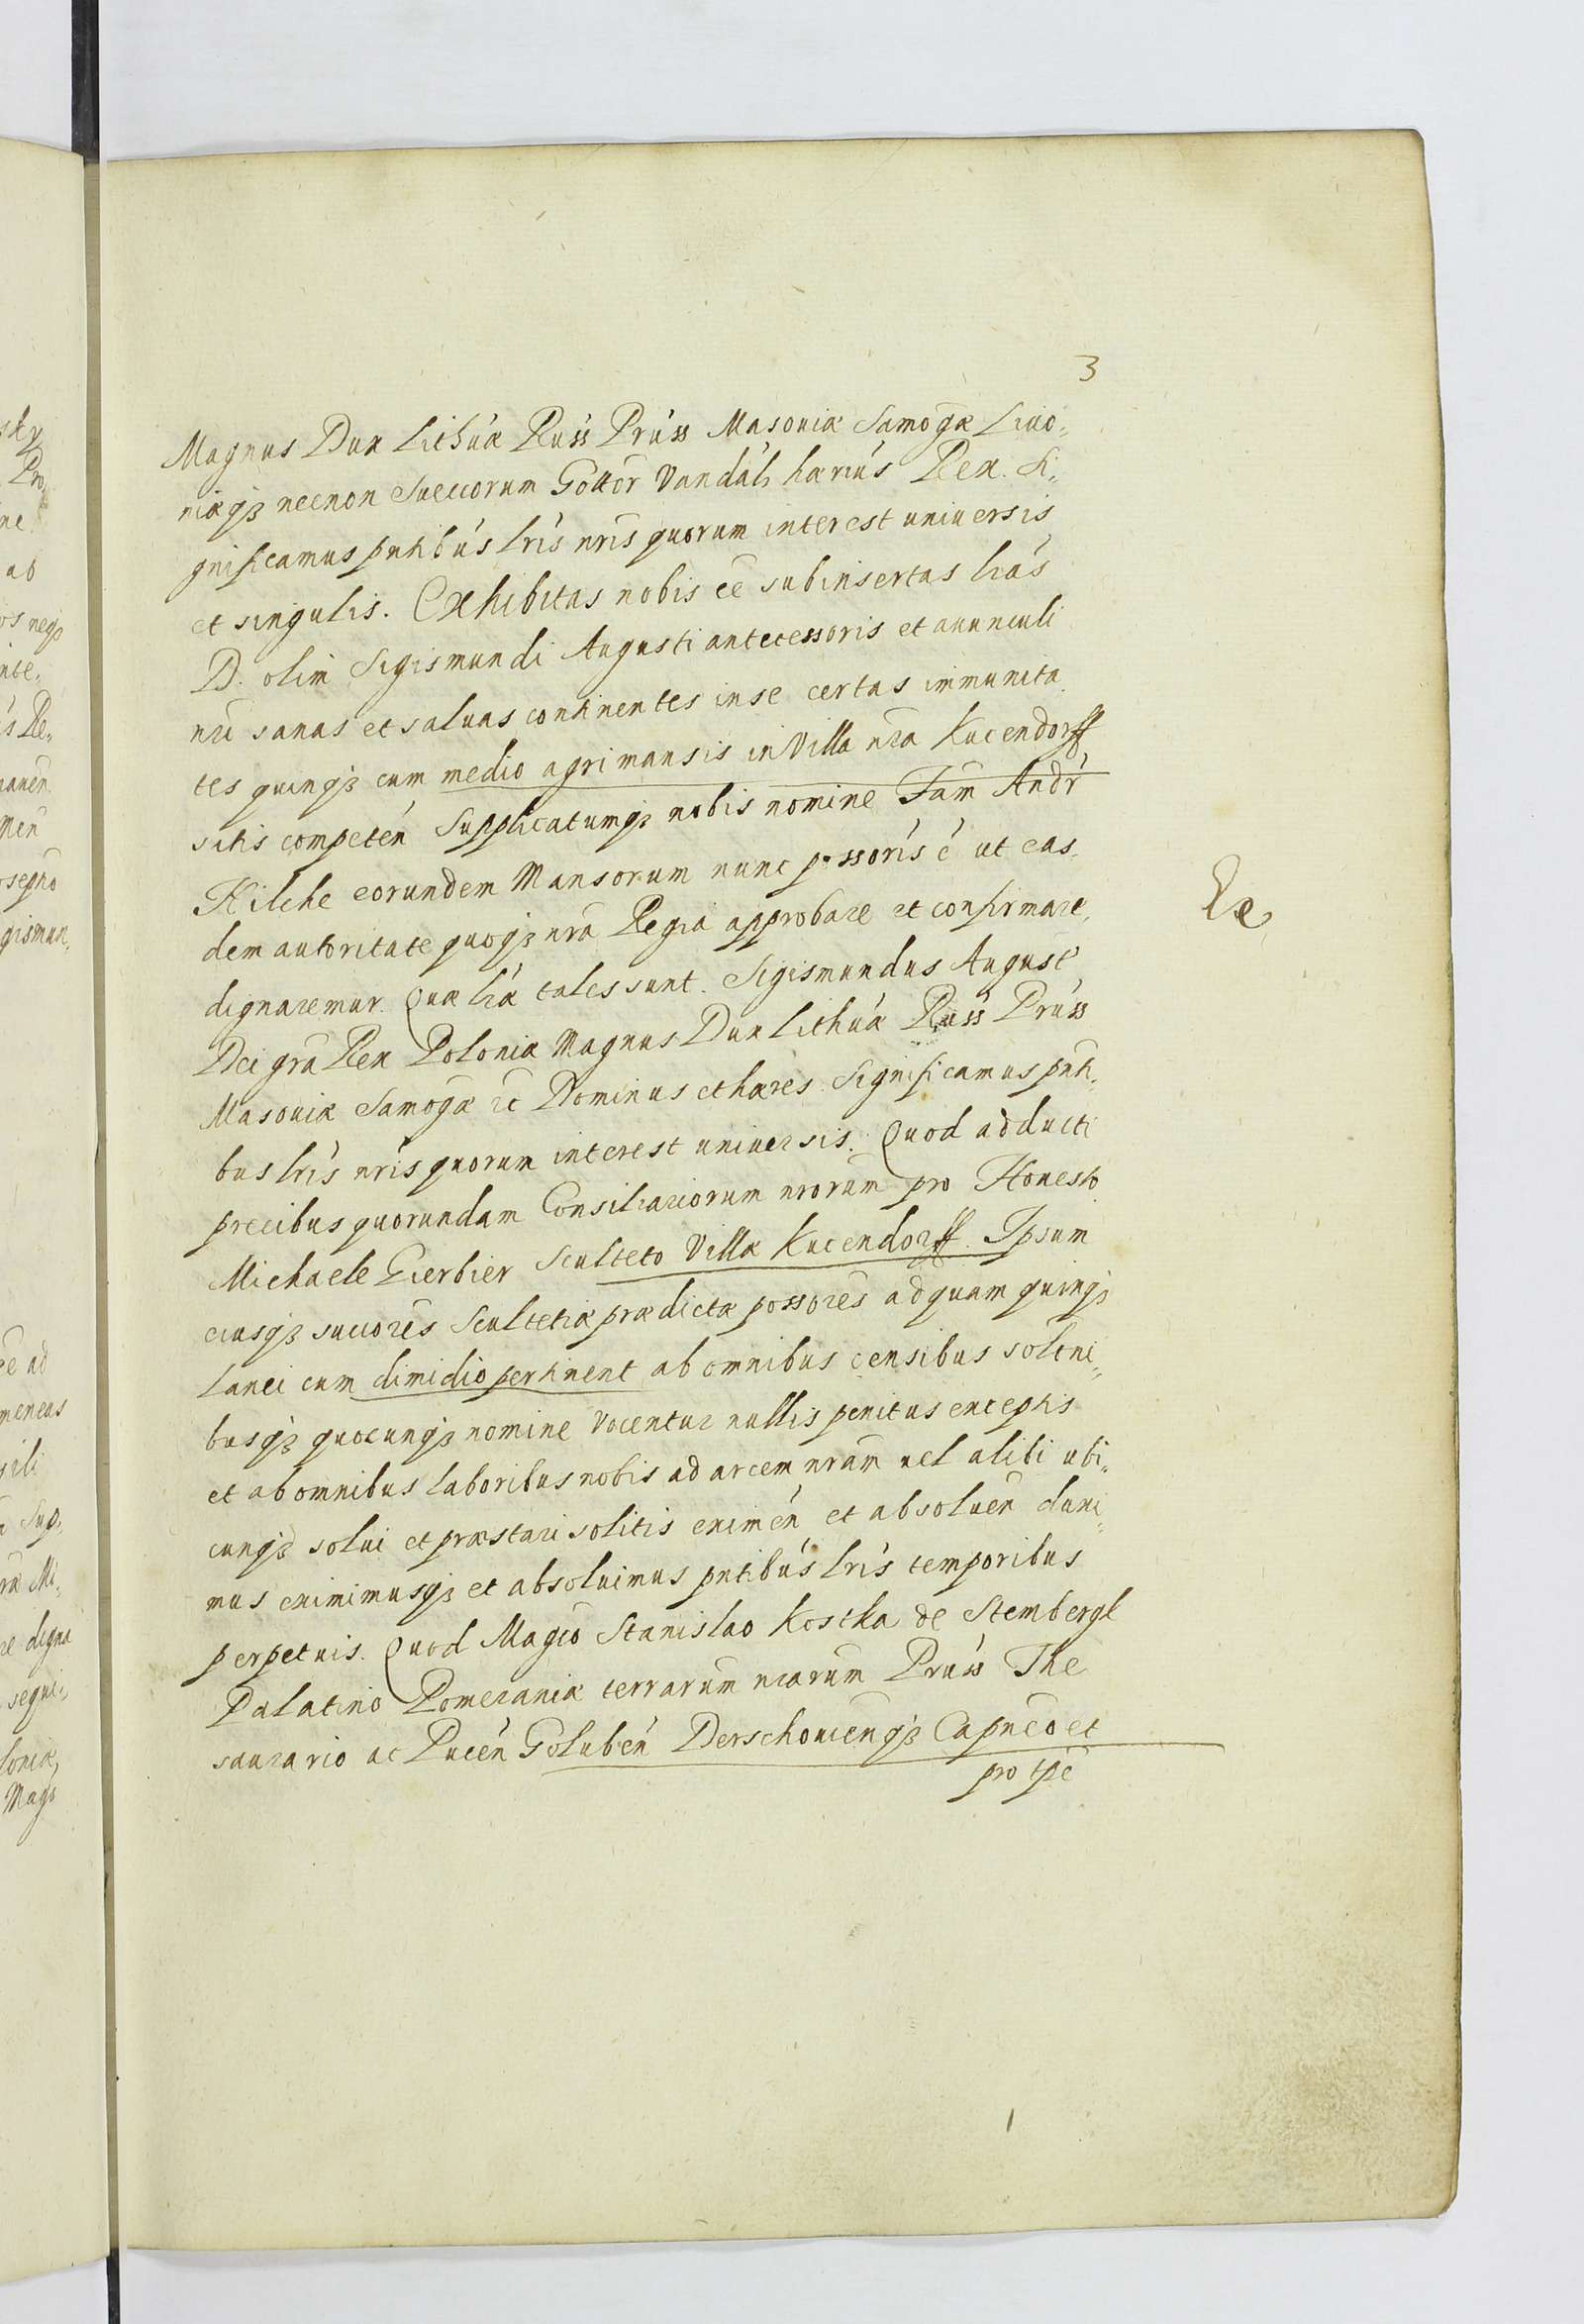 3
Magnus Dux Lithuæ Russ Pruss Masoviæ Samogæ Livo„
niæqз necnon Suecorum Gottor Vandalq hærius Rex. Si„
gnificamus pntibus lris nris quorum interest universis
et singulis. Exhibitas nobis ee subinsertas lras
D. olim Sigismundi Augusti antecessoris et avunculi
nri sanas et salvas continentes in se certas immunita„
tes quinqз cum medio agri mansis in Villa nra Kucendorff
sitis competen Supplicatumqз nobis nomine Fam Andr
Hilche eorundem Mansorum nunc possoris e ut eas„
dem autoritate quoqз nra Regia approbare et confirmare
dignaremur. Quæ lræ tales sunt. Sigismundus August
Dei gra Rex Poloniæ Magnus Dux Lithuæ Russ Pruss
Masoviæ Samogæ etc Dominus et hæres. Significamus pnti„
bus lris nris quorum interest universis. Quod adducti
precibus quorundam Consiliariorum nrorum pro Honesto
Michaele Gierbier Sculteto Villæ Kucendorff. Ipsum
eiusqз succores Scultetiæ prædictæ possores ad quam quinqз
lanei cum dimidio pertinent ab omnibus censibus soleni„
busqз quocunqз nomine vocentur nullis penitus exceptis
et ab omnibus laboribus nobis ad arcem nram vel alibi ubi„
cunqз solui et præstari solitis eximen et absoluen duxi„
mus eximimusqз et absoluimus pntibus lris temporibus
perpetuis. Quod Magco Stanislao Kostka de Stembergk
Palatino Pomeraniæ terrarum nrarum Pruss The
saurario ac Pucen Goluben Derschoviengз Capneo et
pro tpe